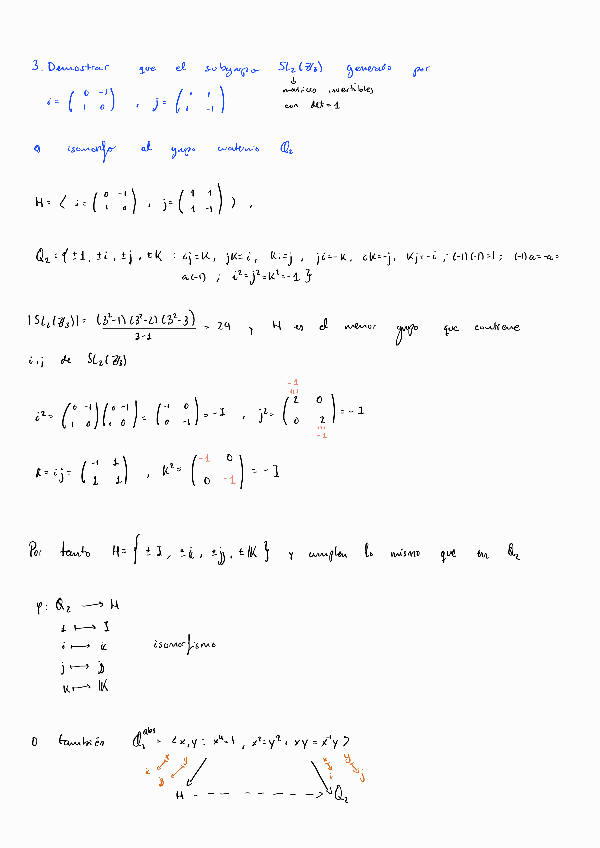 3. Demostrar que el subgrupo SL₂(ℤ/3) generado por
↓
matrices invertibles
con det = 1
i = ( 0 -1 ; 1 0 ) , j = ( 1 1 ; 1 -1 )
es isomorfo al grupo cuaternio Q₂
H = ⟨ i = ( 0 -1 ; 1 0 ) , j = ( 1 1 ; 1 -1 ) ⟩ ,
Q₂ = { ±1, ±i, ±j, ±K : ij=K, jK=i, Ki=j, ji=-K, iK=-j, Kj=-i ; (-1)(-1)=1; (-1)a=-a=
a(-1) ; i²=j²=K²=-1 }
|SL₂(ℤ/3)| = (3²-1)(3²-3) / 3-1 = 24 y H es el menor grupo que contiene
i, j de SL₂(ℤ/3)
i² = ( 0 -1 ; 1 0 ) ( 0 -1 ; 1 0 ) = ( -1 0 ; 0 -1 ) = -I , j² = ( 2 0 ; 0 2 ) = -I
-1
-1
K = ij = ( -1 1 ; 1 1 ) , K² = ( -1 0 ; 0 -1 ) = -I
Por tanto H = { ±I, ±i, ±j, ±K } y cumplen lo mismo que en Q₂
φ: Q₂ → H
1 ↦ I
i ↦ i isomorfismo
j ↦ j
K ↦ K
O también Q₂ᵃᵇˢ = ⟨ x, y : x⁴=1, x²=y², xy = x⁻¹y ⟩
i ← x
j ← y
x ↦ i
y ↦ j
H - - - - - - → Q₂